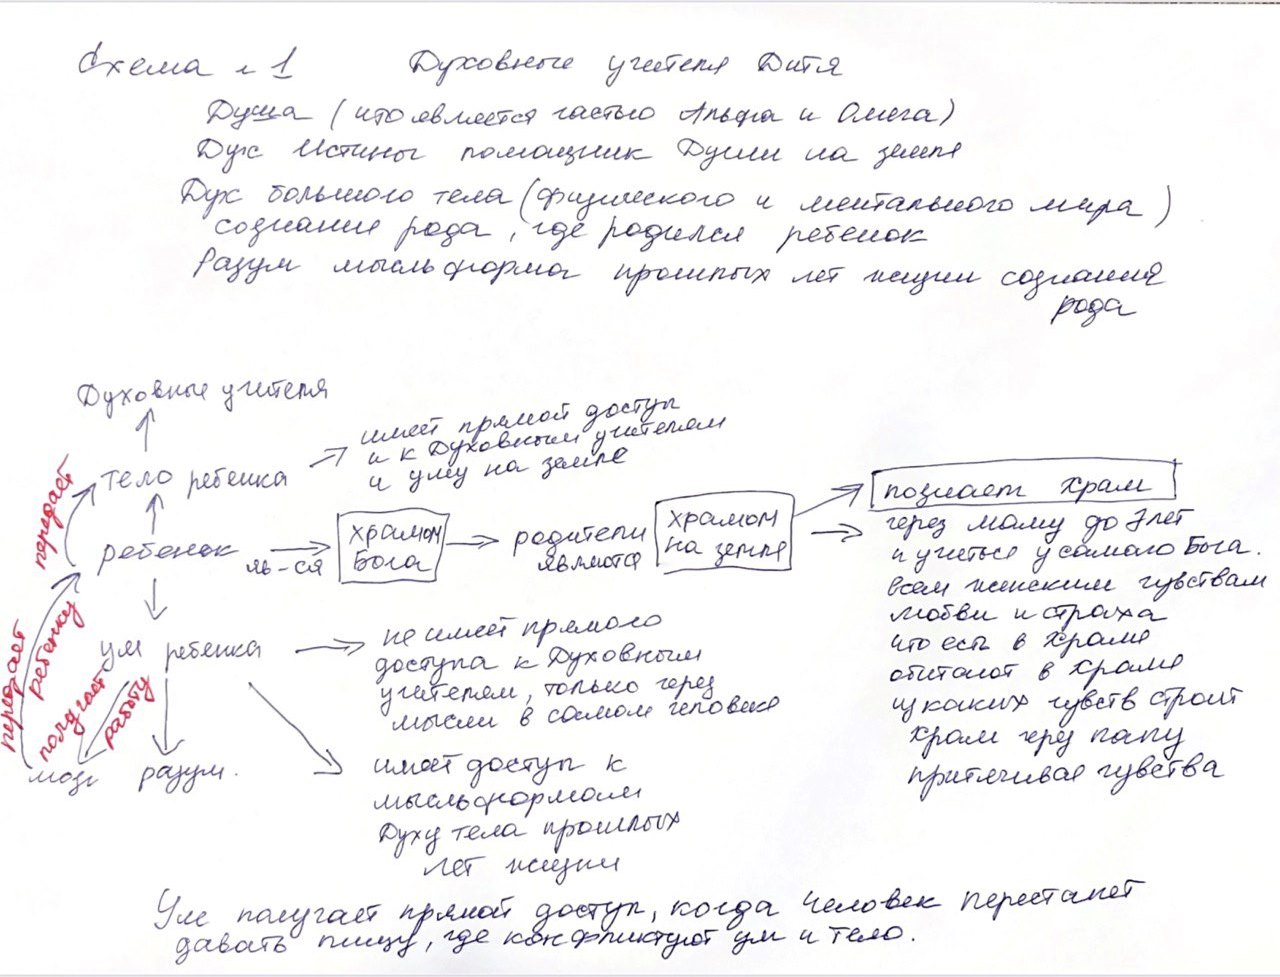 Схема н 1 Духовные учителя Дитя
Душа (что является частью Альфа и Омега)
Дух Истины помощник Души на земле
Дух большого тела (физического и ментального мира)
сознание рода, где родился ребенок
Разум мысльформа прошлых лет жизни сознания
рода
Духовные учителя
тело ребенка
имеет прямой доступ
и к Духовным учителям
и уму на земле
передаёт
ребенок
яв-ся
храмом
Бога
родители
являются
храмом
на земле
познает храм
через маму до 7 лет
и учиться у самого Бога.
всем женским чувствам
любви и страха
что есть в храме
обитают в храме
из каких чувств строит
храм через папу
притягивая чувства
ум ребенка
не имеет прямого
доступа к Духовным
учителям, только через
мысли в самом человеке
передает
ребенку
получает
работу
мозг
разум.
имеет доступ к
мысльформам
Духу тела прошлых
лет жизни
Ум получает прямой доступ, когда человек перестанет
давать пищу, где конфликтуют ум и тело.